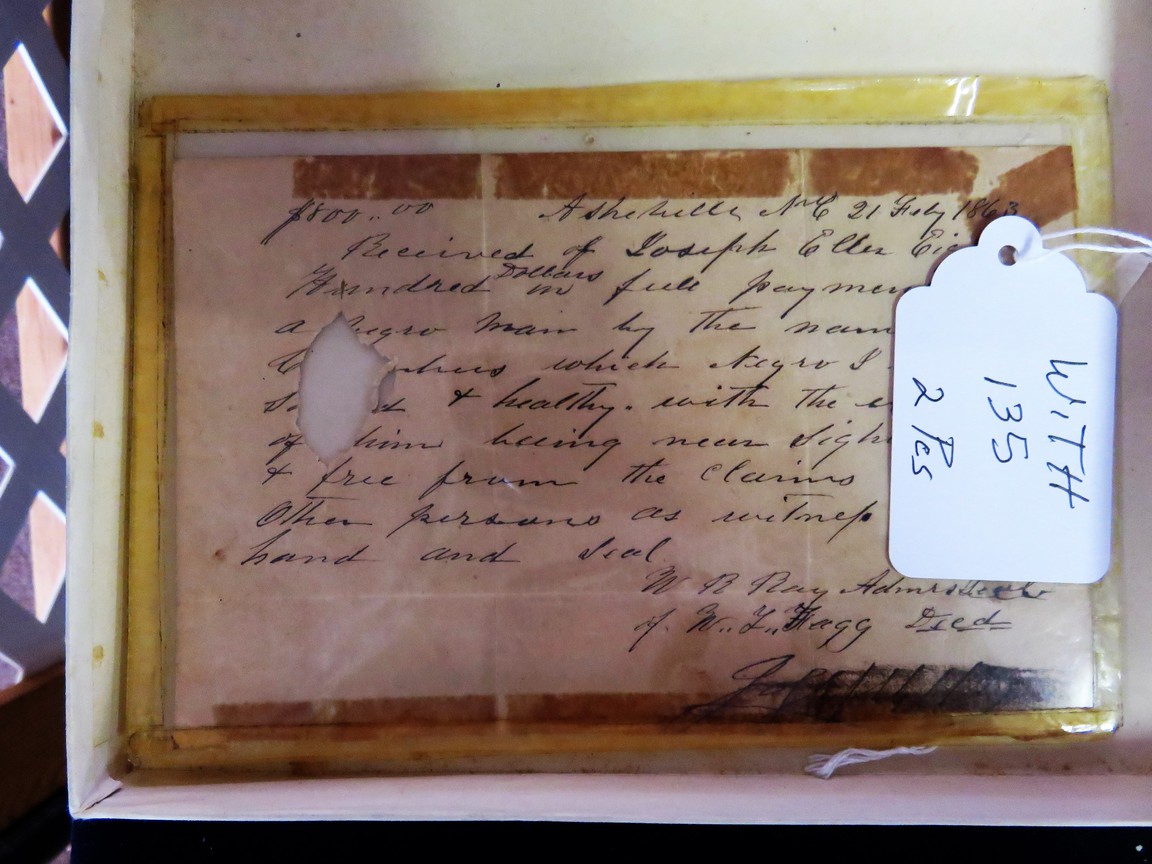 $800.. 00 Asheville N C 21 Feby 1863
Received of Joseph Eller
Hundred Dollars in full
a negro man by the
which Negro I
& healthy. with the
of him being near
& free from the Claims
Other persons as witness
hand and Seal
W R Ray Admr
of W.. T.. Flagg Decd
WITH
135
2 Pcs